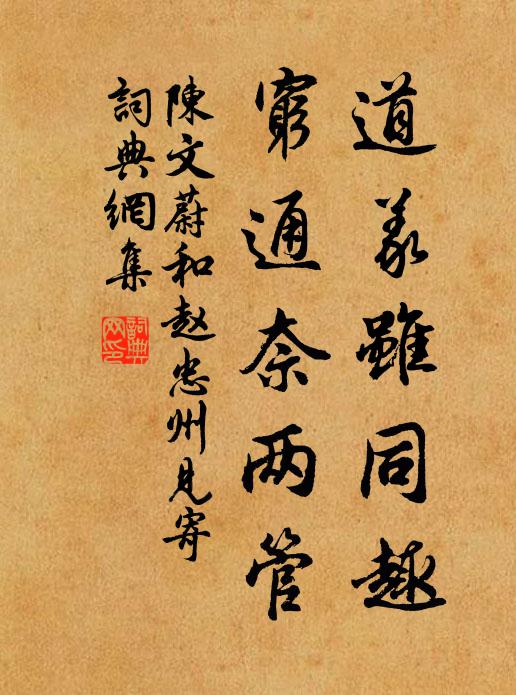 道義雖同趣
窮通奈两管
陳文蔚和赵忠州見寄
詞典網集
詞典网印